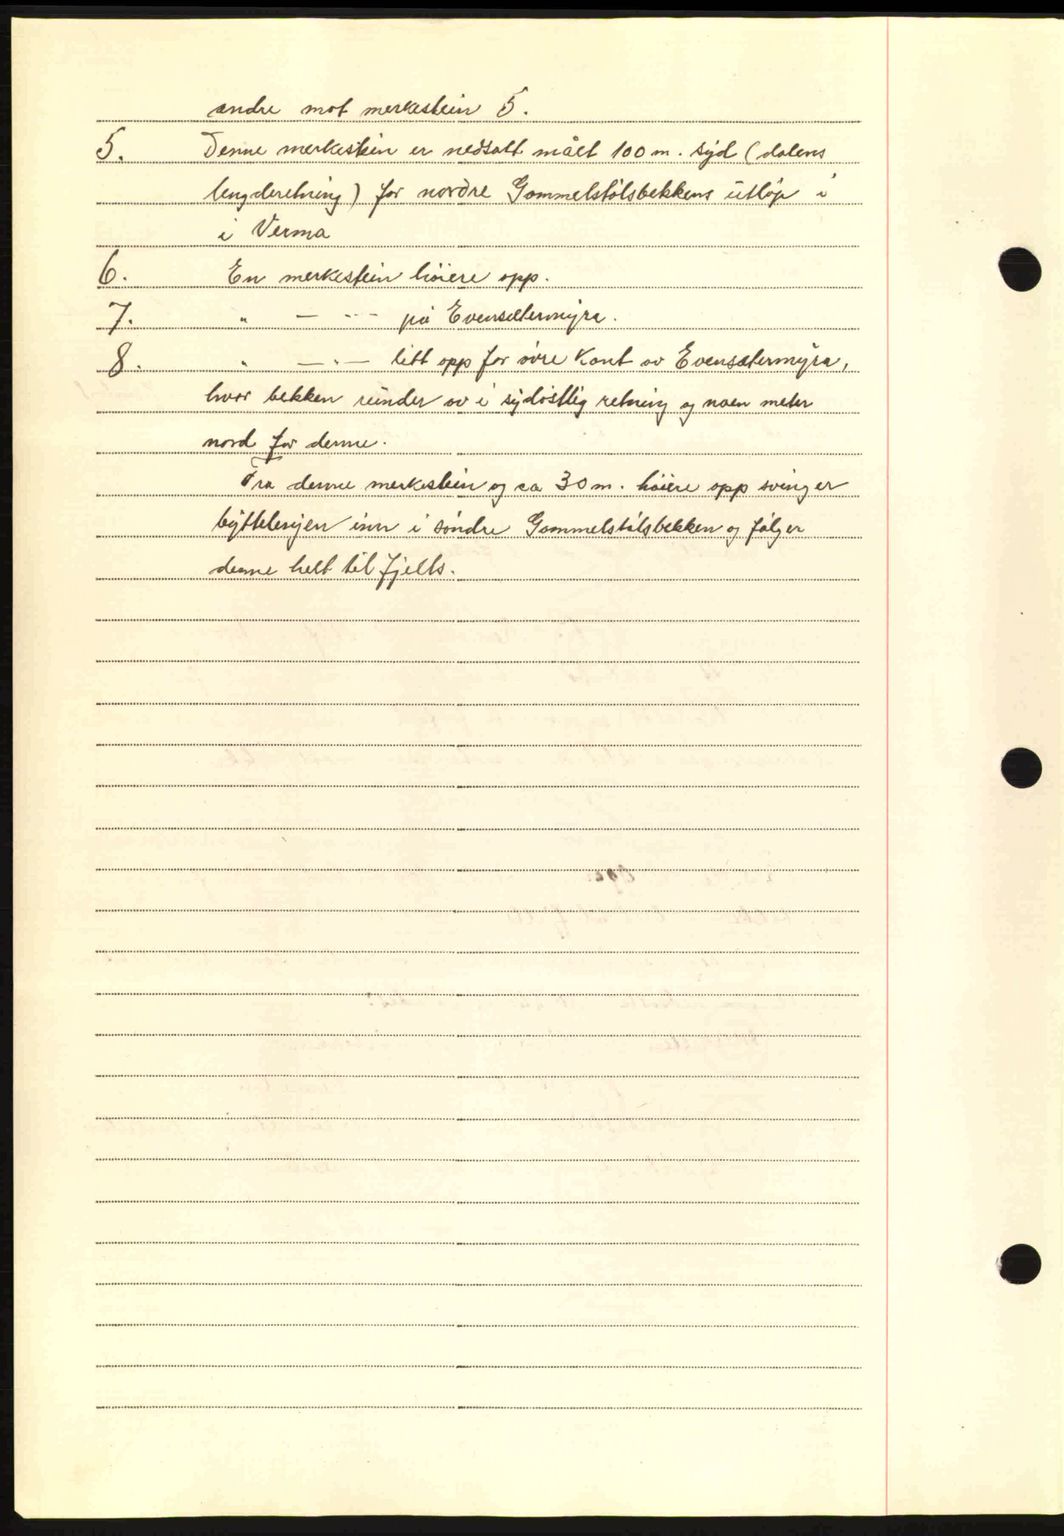 andre mot merkestein 5.
5. Denne merkestein er nedsatt målt 100 m. syd (dalens
lengderetning) for nordre Gammelstölsbekkens utlöp i
i Verma
6. En merkestein höiere opp.
7. " — " — på Evensætermyra.
8. " — " — litt opp for övre kant av Evensætermyra,
hvor bekken runder av i sydöstlig retning og noen meter
nord for denne.
Fra denne merkestein og ca 30 m. höiere opp svinger
byttelinjen inn i söndre Gammelstölsbekken og fölger
denne helt til fjells.